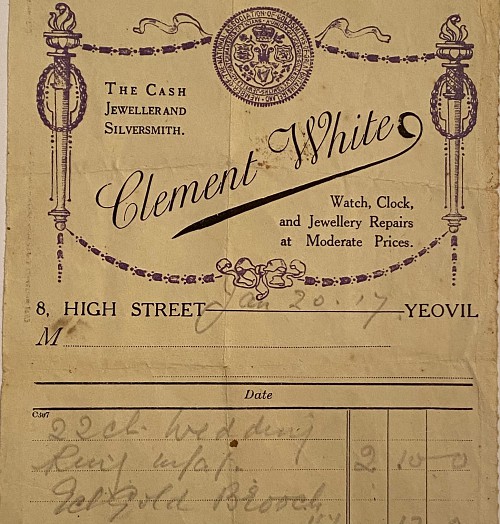 THE CASH
JEWELLER AND
SILVERSMITH.
Clement White
Watch, Clock,
and Jewellery Repairs
at Moderate Prices.
8, HIGH STREET Jan 20.17 YEOVIL
M
Date
C307
22ct. Wedding
Ring 2 10 0
Gold Brooch